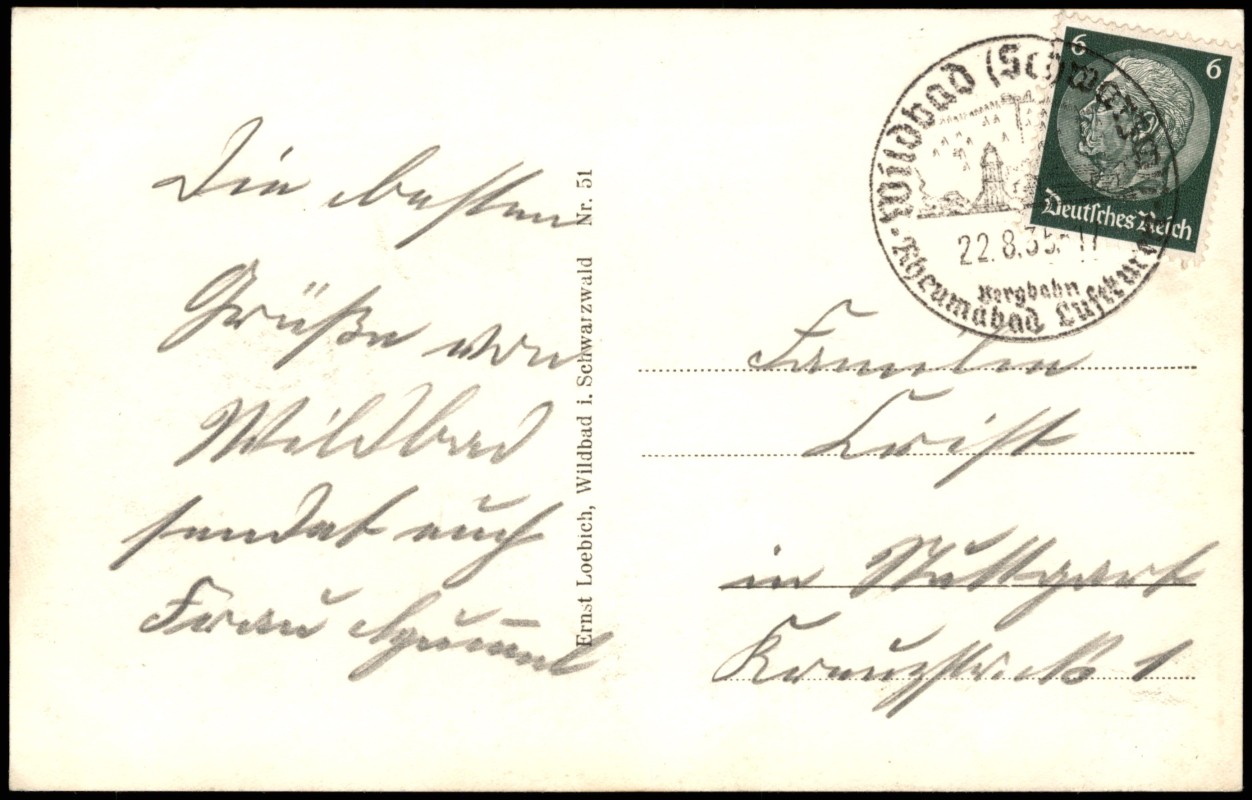 Die besten
Grüße von
Wildbad
sendet euch
Frau
Ernst Loebich, Wildbad i. Schwarzwald Nr. 51
Wildbad (Schwarzwald)
22.8.35.
Bergbahn
Rheumabad Luftkurort
6 6
Deutsches Reich
Familie
in Stuttgart
Kreuzstraße 1